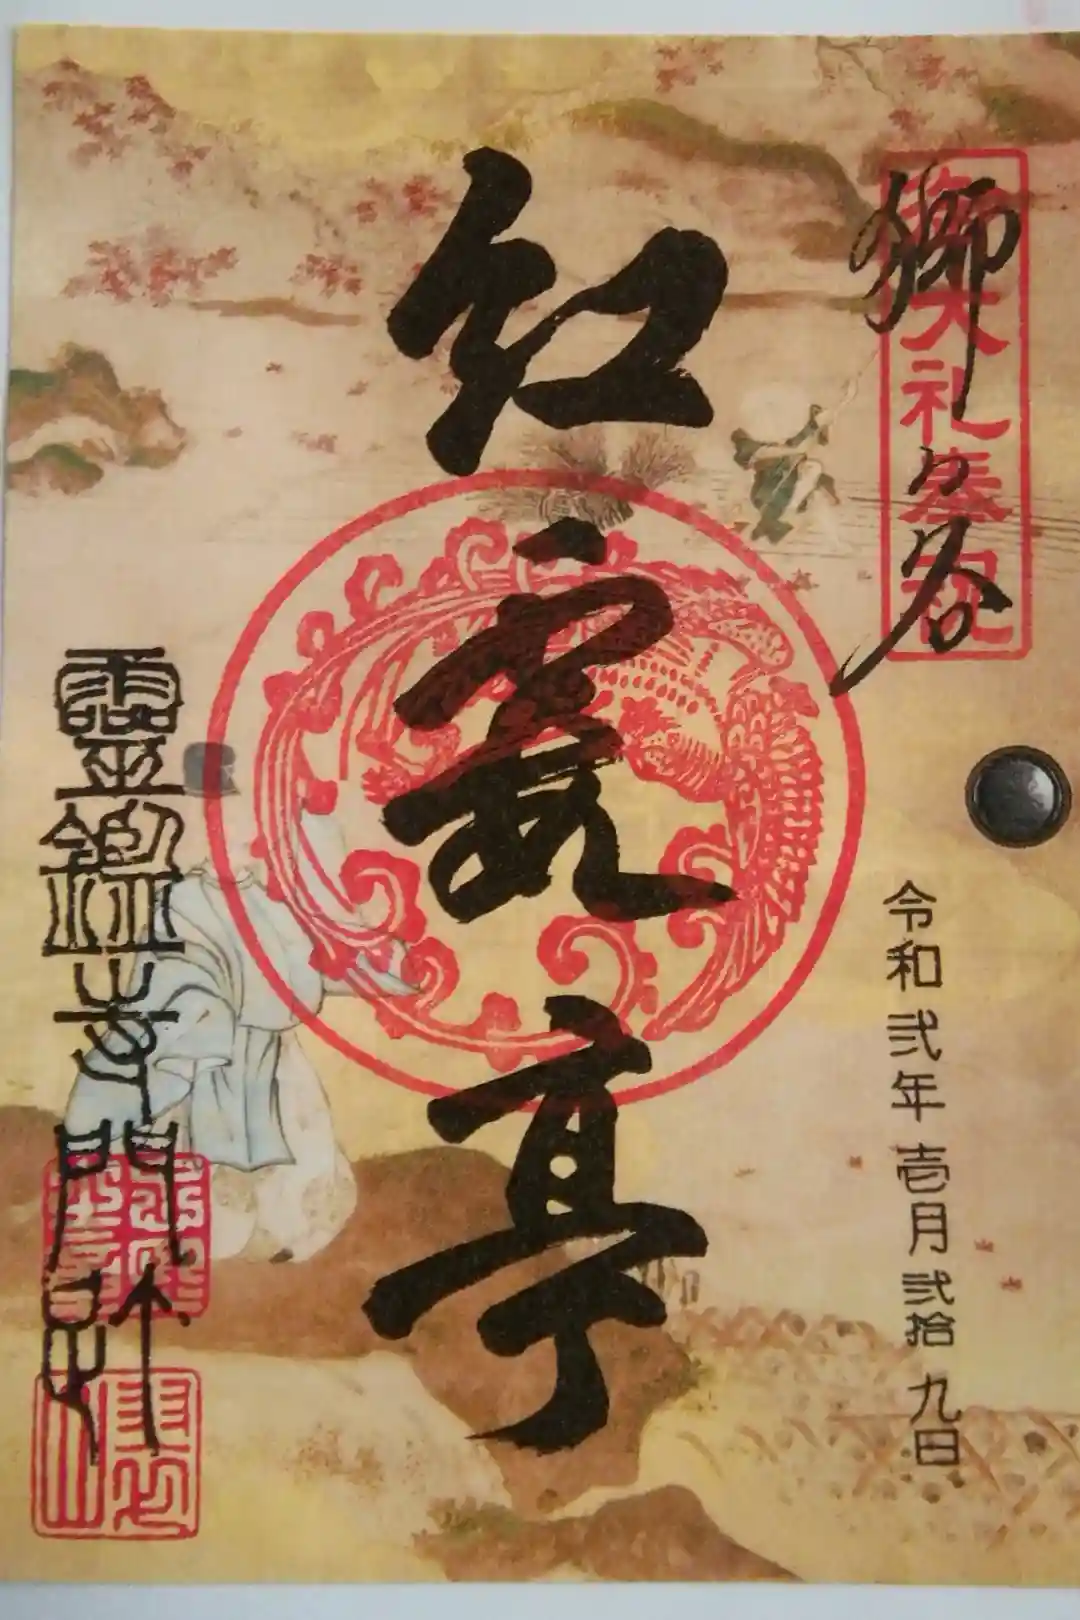 御大礼奉祝
獅ヶ谷
令和弐年壱月弐拾九日
紅霞亭
靈鑑寺門跡